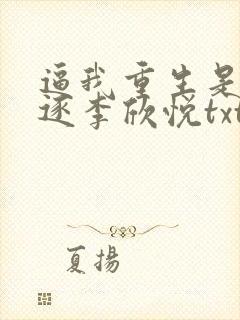 逼我重生是
逐李欣悦txt
夏揚